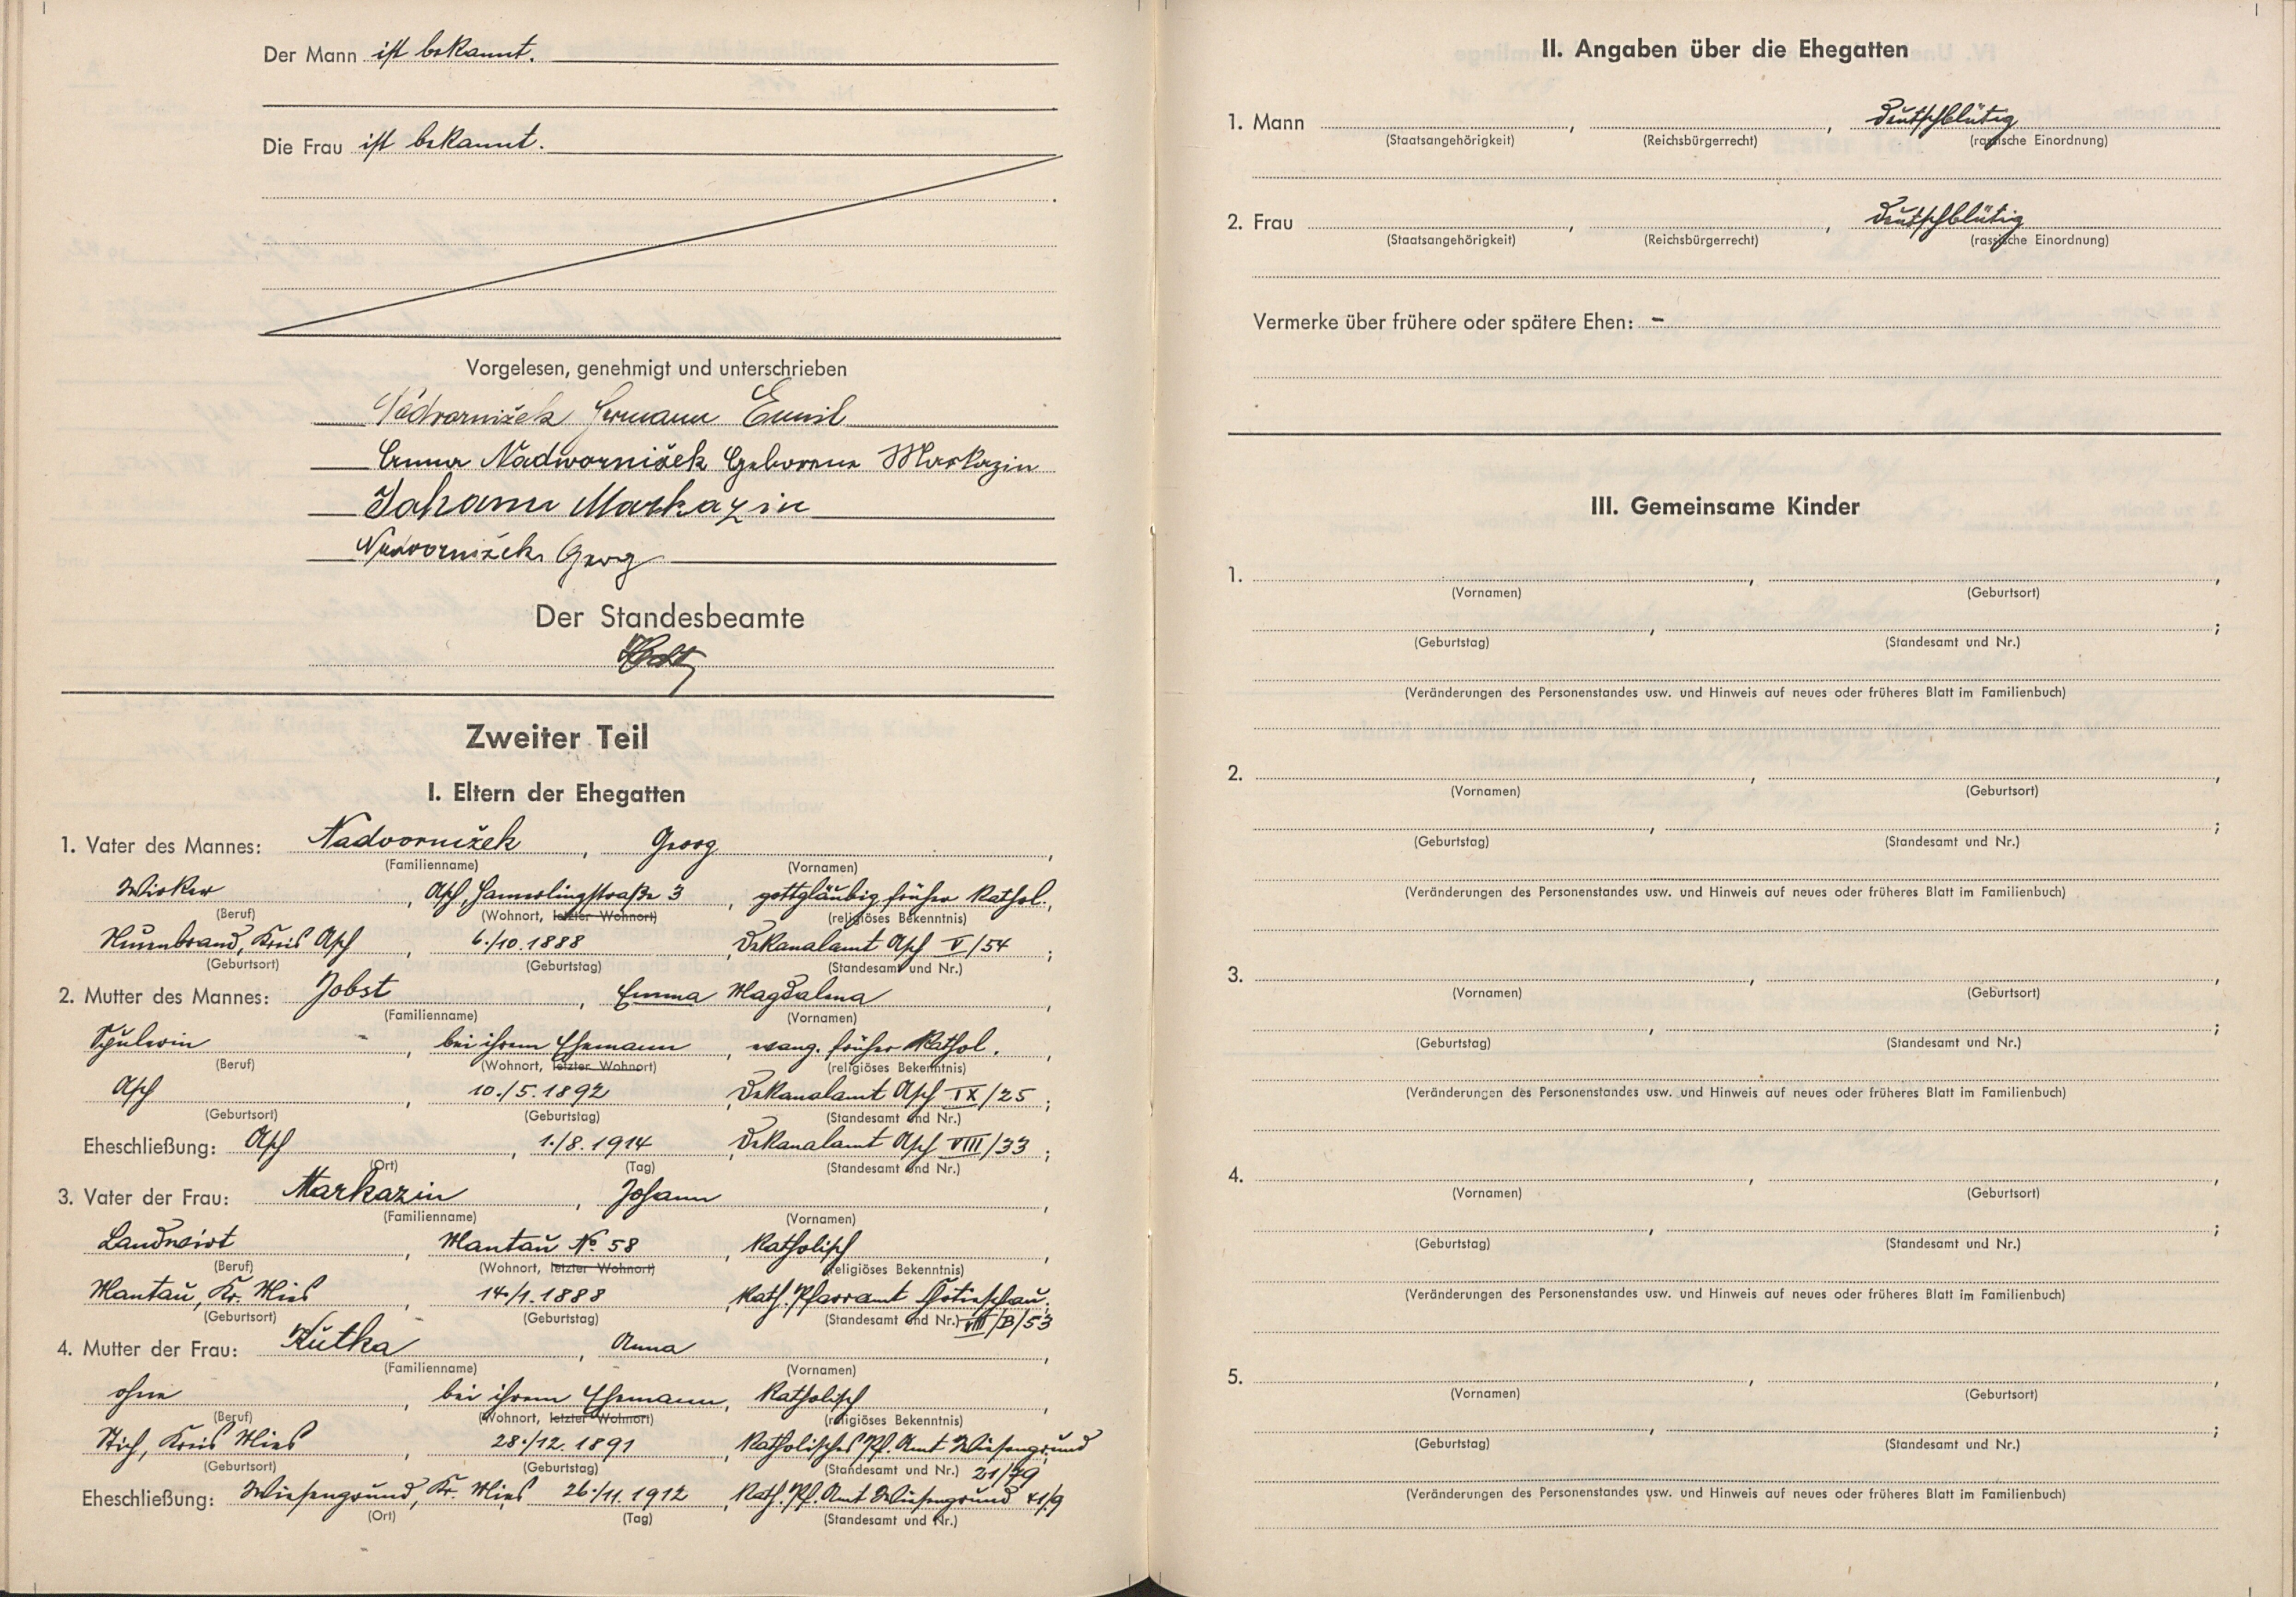 Der Mann ist bekannt.
Die Frau ist bekannt.
Vorgelesen, genehmigt und unterschrieben
Nadvornižek Hermann Emil
Anna Nadwornižek Geborene Markazin
Johann Markazin
Nadvornižek Georg
Der Standesbeamte
Zweiter Teil
I. Eltern der Ehegatten
1. Vater des Mannes: Nadvornižek, Georg,
(Familienname) (Vornamen)
Wirker, Asch, Hamerlingstraße 3, gottgläubig früher kathol.,
(Beruf) (Wohnort, letzter Wohnort) (religiöses Bekenntnis)
Neuenbrand, Kreis Asch, 6./10.1888, Dekanalamt Asch V/54;
(Geburtsort) (Geburtstag) (Standesamt und Nr.)
2. Mutter des Mannes: Jobst, Emma Magdalena,
(Familienname) (Vornamen)
Spulerin, bei ihrem Ehemann, evang. früher kathol.,
(Beruf) (Wohnort, letzter Wohnort) (religiöses Bekenntnis)
Asch, 10./5.1892, Dekanalamt Asch IX/25;
(Geburtsort) (Geburtstag) (Standesamt und Nr.)
Eheschließung: Asch, 1./8.1914, Dekanalamt Asch VIII/33;
(Ort) (Tag) (Standesamt und Nr.)
3. Vater der Frau: Markazin, Johann,
(Familienname) (Vornamen)
Landwirt, Mantau No 58, katholisch,
(Beruf) (Wohnort, letzter Wohnort) (religiöses Bekenntnis)
Mantau, Kr. Mies, 14./1.1888, Kath. Pfarramt;
(Geburtsort) (Geburtstag) (Standesamt und Nr.) VIII/B/53
4. Mutter der Frau: Kutka, Anna,
(Familienname) (Vornamen)
ohne, bei ihrem Ehemann, katholisch,
(Beruf) (Wohnort, letzter Wohnort) (religiöses Bekenntnis)
Stich, Kreis Mies, 28./12.1891, Katholisches Pf. Amt Wiesengrund
(Geburtsort) (Geburtstag) (Standesamt und Nr.) 21/79
Eheschließung: Wiesengrund, Kr. Mies, 26./11.1912, Kath. Pf. Amt Wiesengrund
(Ort) (Tag) (Standesamt und Nr.)
II. Angaben über die Ehegatten
1. Mann , , deutschblütig
(Staatsangehörigkeit) (Reichsbürgerrecht) (rassische Einordnung)
2. Frau , , deutschblütig
(Staatsangehörigkeit) (Reichsbürgerrecht) (rassische Einordnung)
Vermerke über frühere oder spätere Ehen: -
III. Gemeinsame Kinder
1. , ,
(Vornamen) (Geburtsort)
, ;
(Geburtstag) (Standesamt und Nr.)
(Veränderungen des Personenstandes usw. und Hinweis auf neues oder früheres Blatt im Familienbuch)
2. , ,
(Vornamen) (Geburtsort)
, ;
(Geburtstag) (Standesamt und Nr.)
(Veränderungen des Personenstandes usw. und Hinweis auf neues oder früheres Blatt im Familienbuch)
3. , ,
(Vornamen) (Geburtsort)
, ;
(Geburtstag) (Standesamt und Nr.)
(Veränderungen des Personenstandes usw. und Hinweis auf neues oder früheres Blatt im Familienbuch)
4. , ,
(Vornamen) (Geburtsort)
, ;
(Geburtstag) (Standesamt und Nr.)
(Veränderungen des Personenstandes usw. und Hinweis auf neues oder früheres Blatt im Familienbuch)
5. , ,
(Vornamen) (Geburtsort)
, ;
(Geburtstag) (Standesamt und Nr.)
(Veränderungen des Personenstandes usw. und Hinweis auf neues oder früheres Blatt im Familienbuch)